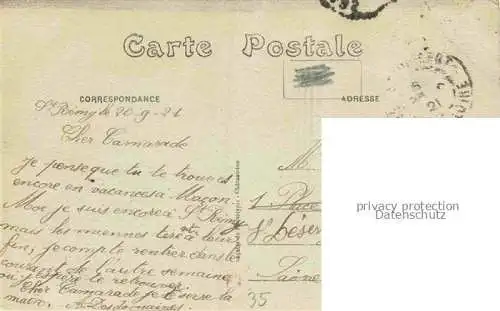 Carte Postale
CORRESPONDANCE
ADRESSE
St Rémy le 20-9-21
Cher Camarade
Je pense que tu te trouves
encore en vacances à Macon.
Moi je suis encore à St Rémy
mais les miennes tire à leur
fin, je compte rentrer dans le
courant de l'autre semaine
ou j'espère te retrouver.
Cher Camarade je te serre la
main,
M.
1 Place
St Léser
Saône
35
privacy protection
Datenschutz